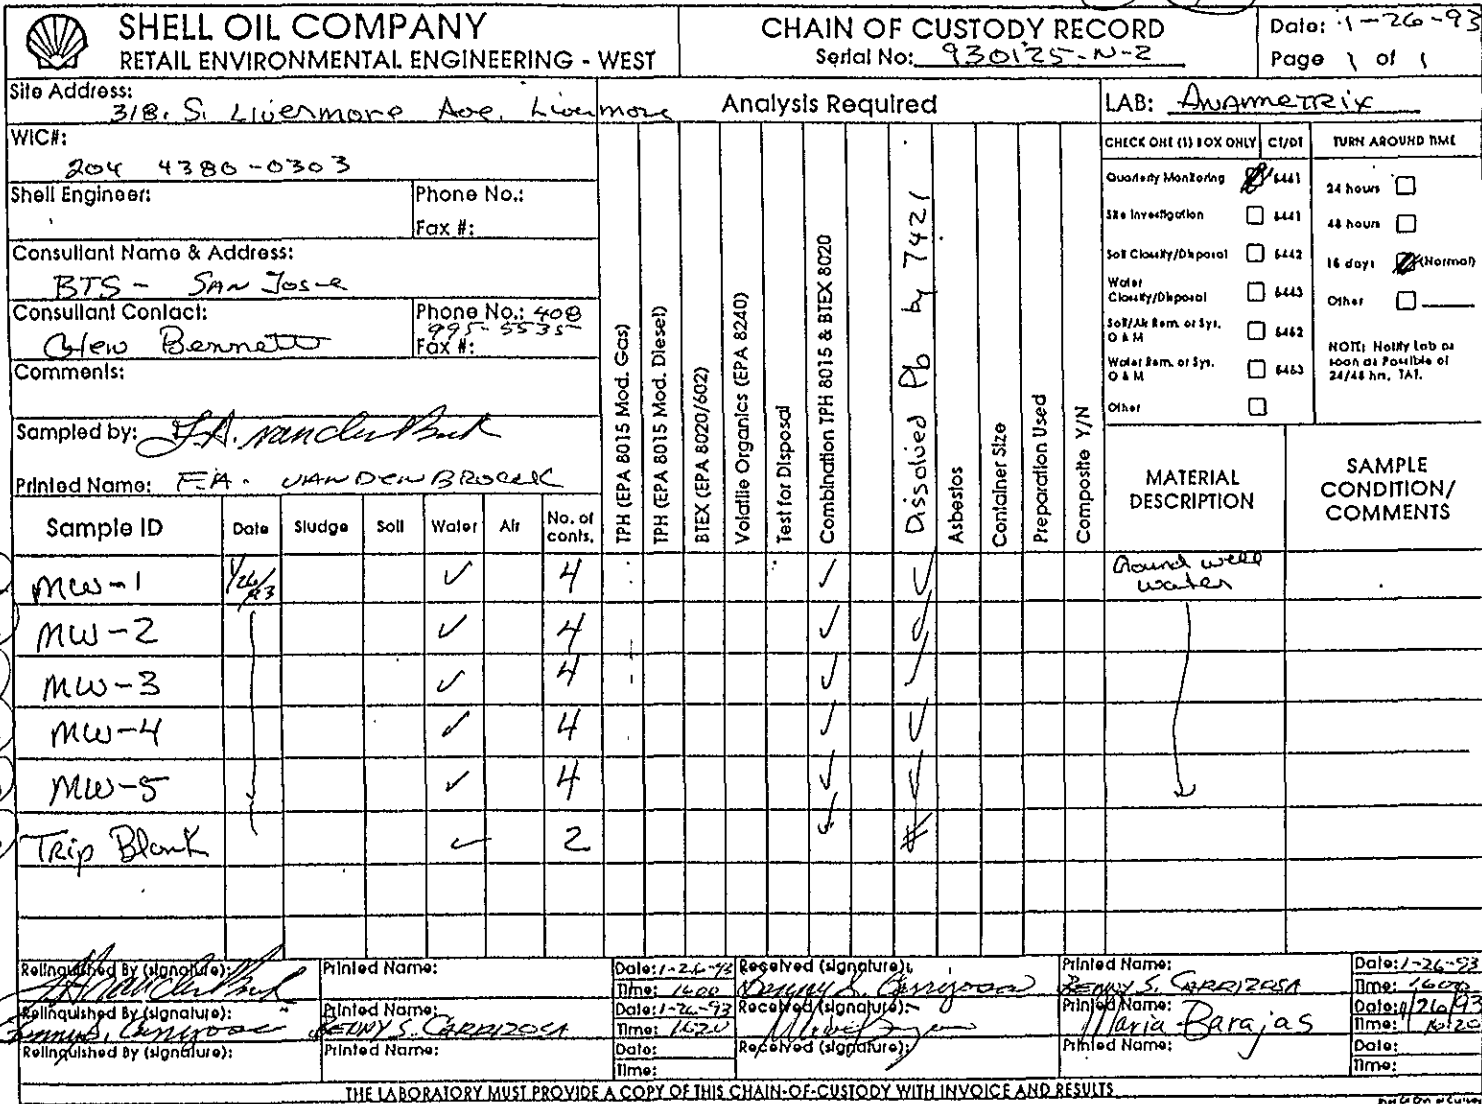 SHELL OIL COMPANY
RETAIL ENVIRONMENTAL ENGINEERING - WEST
CHAIN OF CUSTODY RECORD
Serial No: 930125-N-2
Date: 1-26-93
Page 1 of 1
Site Address:
318. S. Livermore Ave. Livermore
WIC#:
204 4380-0303
Shell Engineer:
Phone No.:
Fax #:
Consultant Name & Address:
BTS - San Jose
Consultant Contact:
Glen Bennett
Phone No.: 408
995-5535
Fax #:
Comments:
Sampled by:
Printed Name: F.A. VANDENBROECK
Analysis Required
LAB: Anametrix
CHECK ONE (1) BOX ONLY CT/DT
Quarterly Monitoring 6441
Site Investigation 6441
Soil Classify/Disposal 6442
Water Classify/Disposal 6443
Soil/Air Rem. or Sys. O & M 6452
Water Rem. or Sys. O & M 6453
Other
TURN AROUND TIME
24 hours
48 hours
16 days (Normal)
Other
NOTE: Notify Lab as soon as Possible of 24/48 hrs. TAT.
TPH (EPA 8015 Mod. Gas)
TPH (EPA 8015 Mod. Diesel)
BTEX (EPA 8020/602)
Volatile Organics (EPA 8240)
Test for Disposal
Combination TPH 8015 & BTEX 8020
Dissolved Pb by 7421
Asbestos
Container Size
Preparation Used
Composite Y/N
MATERIAL DESCRIPTION
SAMPLE CONDITION/ COMMENTS
Sample ID Date Sludge Soil Water Air No. of conts.
MW-1 1/26/93 ✓ 4 ✓ ✓ Ground well water
MW-2 ✓ 4 ✓ ✓
MW-3 ✓ 4 ✓ ✓
MW-4 ✓ 4 ✓ ✓
MW-5 ✓ 4 ✓ ✓
Trip Blank ✓ 2 ✓
Relinquished By (signature):
Printed Name:
Date: 1-26-93
Time: 1600
Received (signature):
Printed Name:
BENNY S. CARRIZOSA
Date: 1-26-93
Time: 1600
Relinquished By (signature):
Printed Name:
BENNY S. CARRIZOSA
Date: 1-26-93
Time: 1620
Received (signature):
Printed Name:
Maria Barajas
Date: 1/26/93
Time: 1620
Relinquished By (signature):
Printed Name:
Date:
Time:
Received (signature):
Printed Name:
Date:
Time:
THE LABORATORY MUST PROVIDE A COPY OF THIS CHAIN-OF-CUSTODY WITH INVOICE AND RESULTS